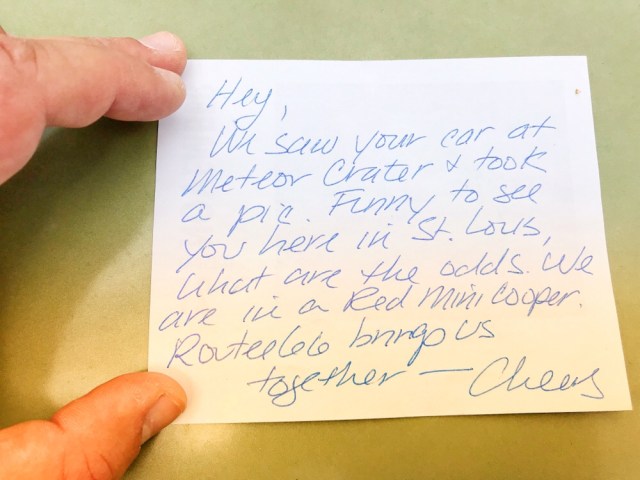 Hey,
We saw your car at
Meteor Crater & took
a pic. Funny to see
you here in St. Louis,
what are the odds. We
are in a Red Mini Cooper.
Route 66 brings us
together — Cheers